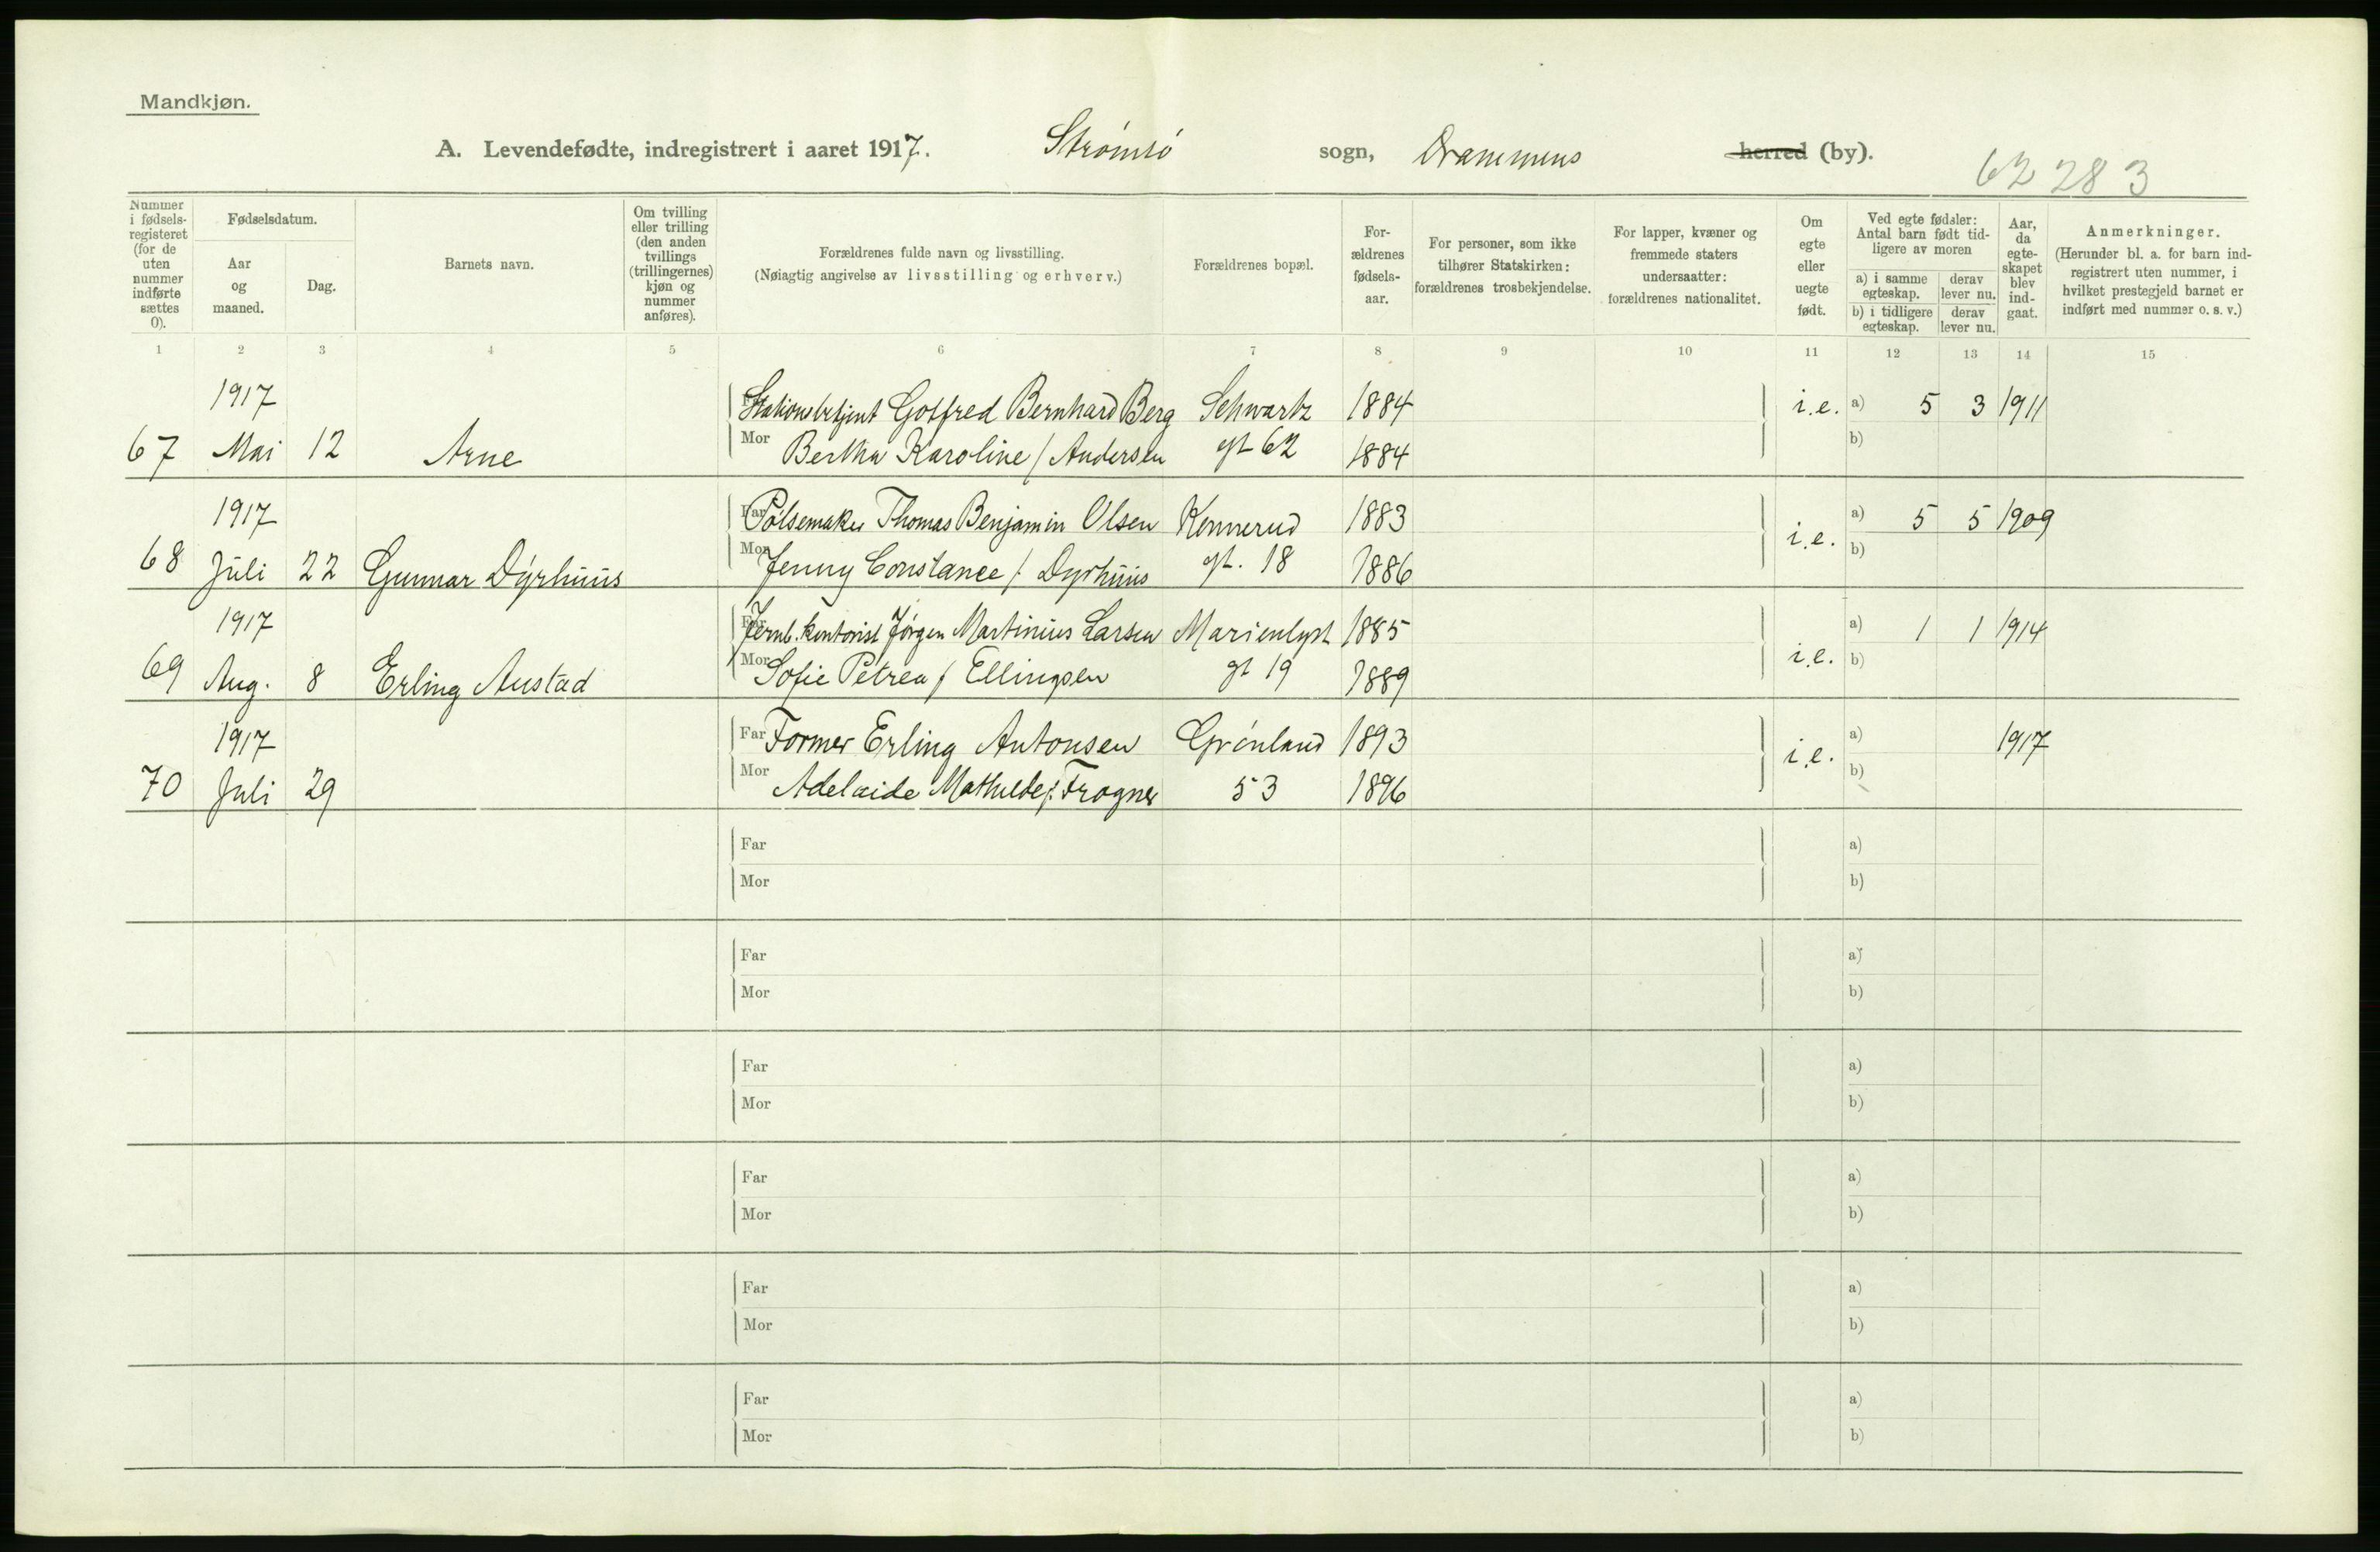 Mandkjøn.
A. Levendefødte, indregistrert i aaret 1917. Strømsö sogn, Drammens herred (by).
62 28 3
Nummer i fødsels-registeret (for de uten nummer indførte sættes 0).
Fødselsdatum.
Aar og maaned.
Dag.
Barnets navn.
Om tvilling eller trilling (den anden tvillings (trillingernes) kjøn og nummer anføres).
Forældrenes fulde navn og livsstilling.
(Nøiagtig angivelse av livsstilling og erhverv.)
Forældrenes bopæl.
For-ældrenes fødsels-aar.
For personer, som ikke tilhører Statskirken: forældrenes trosbekjendelse.
For lapper, kvæner og fremmede staters undersaatter: forældrenes nationalitet.
Om egte eller uegte født.
Ved egte fødsler: Antal barn født tid-ligere av moren
a) i samme egteskap.
derav lever nu.
b) i tidligere egteskap.
derav lever nu.
Aar, da egte-skapet blev ind-gaat.
Anmerkninger.
(Herunder bl. a. for barn ind-registrert uten nummer, i hvilket prestegjeld barnet er indført med nummer o. s. v.)
1 2 3 4 5 6 7 8 9 10 11 12 13 14 15
1917 Far Stationsbetjent Gotfred Bernhard Berg Schwartz 1884 i.e. a) 5 3 1911
67 Mai 12 Arne Mor Bertha Karoline / Andersen gt 62 1884 b)
1917 Far Pölsemaker Thomas Benjamin Olsen Konnerud 1883 i.e. a) 5 5 1909
68 Juli 22 Gunnar Dyrhuus Mor Jenny Constance /. Dyrhuus gt. 18 1886 b)
1917 Far Jernb. kontorist Jörgen Martinius Larsen Marienlyst 1885 i.e. a) 1 1 1914
69 Aug. 8 Erling Austad Mor Sofie Petrea / Ellingsen gt 19 1889 b)
1917 Far Former Erling Antonsen Grönland 1893 i.e. a) 1917
70 Juli 29 Mor Adelaide Mathilde /. Frogner 53 1896 b)
Far a)
Mor b)
Far a)
Mor b)
Far a)
Mor b)
Far a)
Mor b)
Far a)
Mor b)
Far a)
Mor b)